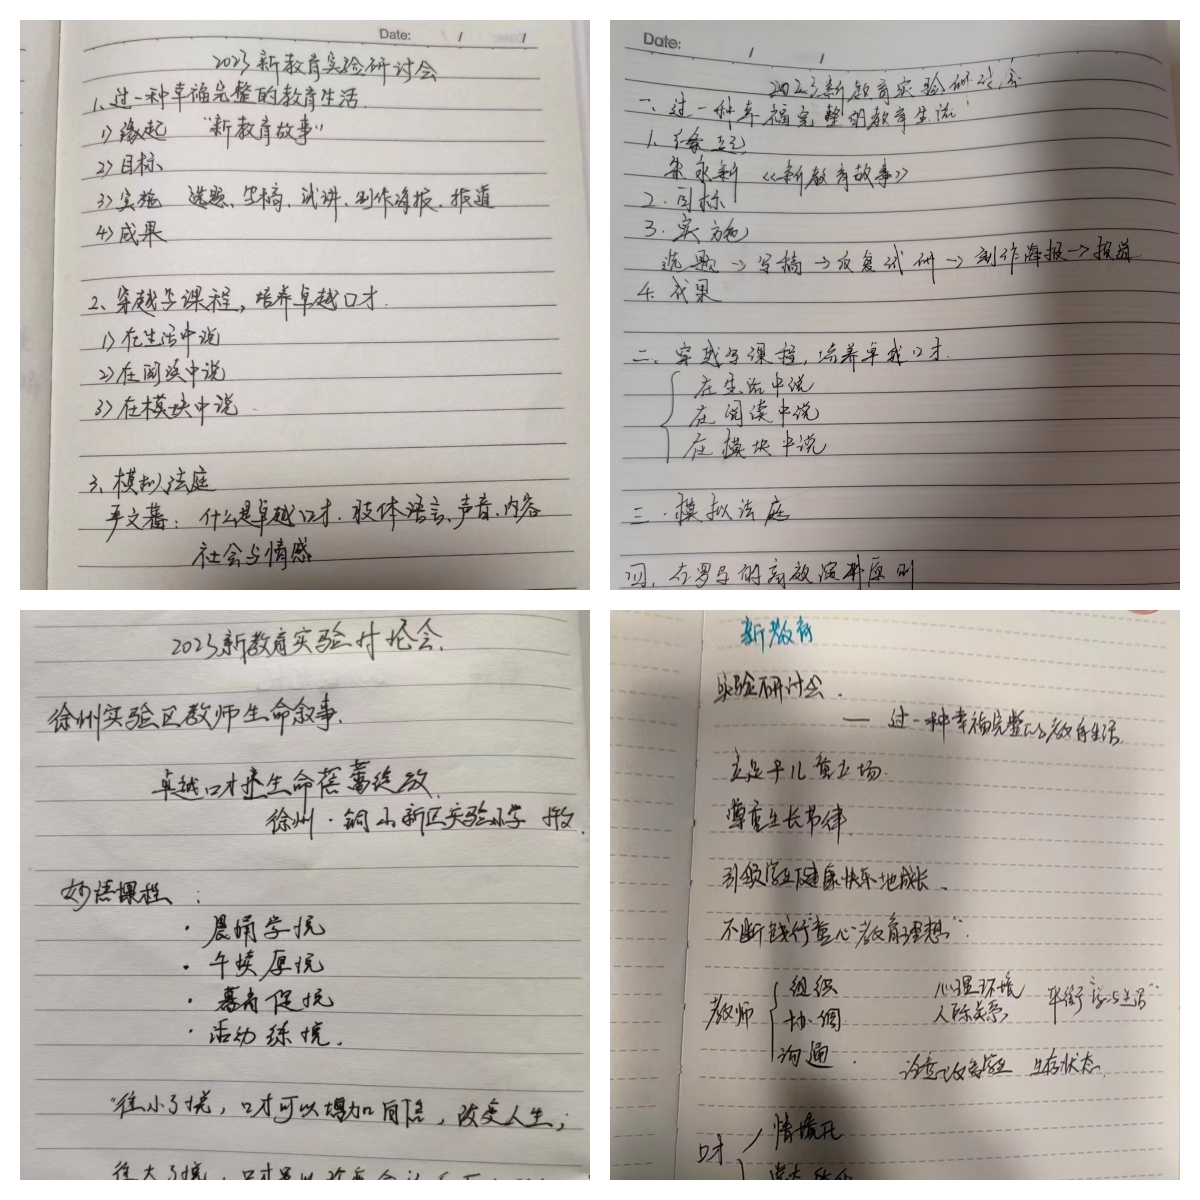 Date: / /
2023新教育实验研讨会
1、过一种幸福完整的教育生活.
1) 缘起 “新教育故事”
2) 目标
3) 实施 选题、写稿、试讲、制作海报、报道
4) 成果
2、穿越字课程，培养卓越口才.
1) 在生活中说
2) 在阅读中说
3) 在模块中说
3、模拟法庭
什么是卓越口才. 肢体语言、声音、内容
社会与情感
Date: / /
2023新教育实验研讨会
一、过一种幸福完整的教育生活!
1、缘起
朱永新 《新教育故事》
2. 目标
3. 实施
选题→写稿→反复试研→制作海报→报道
4. 成果
二、穿越字课程, 培养卓越口才.
在生活中说
在阅读中说
在模块中说
三. 模拟法庭
四. 在 的高效 原则
2023新教育实验讨论会.
徐州实验区教师生命叙事.
卓越口才 生命蓓蕾绽放.
徐州·铜山新区实验小学
妙语课程:
· 晨诵学说
· 午读厚说
· 暮省促说
· 活动练说.
“往小了说, 口才可以增加自信, 改变人生;
往大了说, 口才
新教育
实验研讨会.
— 过一种幸福完整的教育生活.
立足于儿童立场.
尊重生长节律.
引领学生健康快乐地成长.
不断践行童心“教育理想”.
教师
组织
协调
沟通.
心理环境
人际关系
平衡“学与生活”
生存状态.
口才
情境